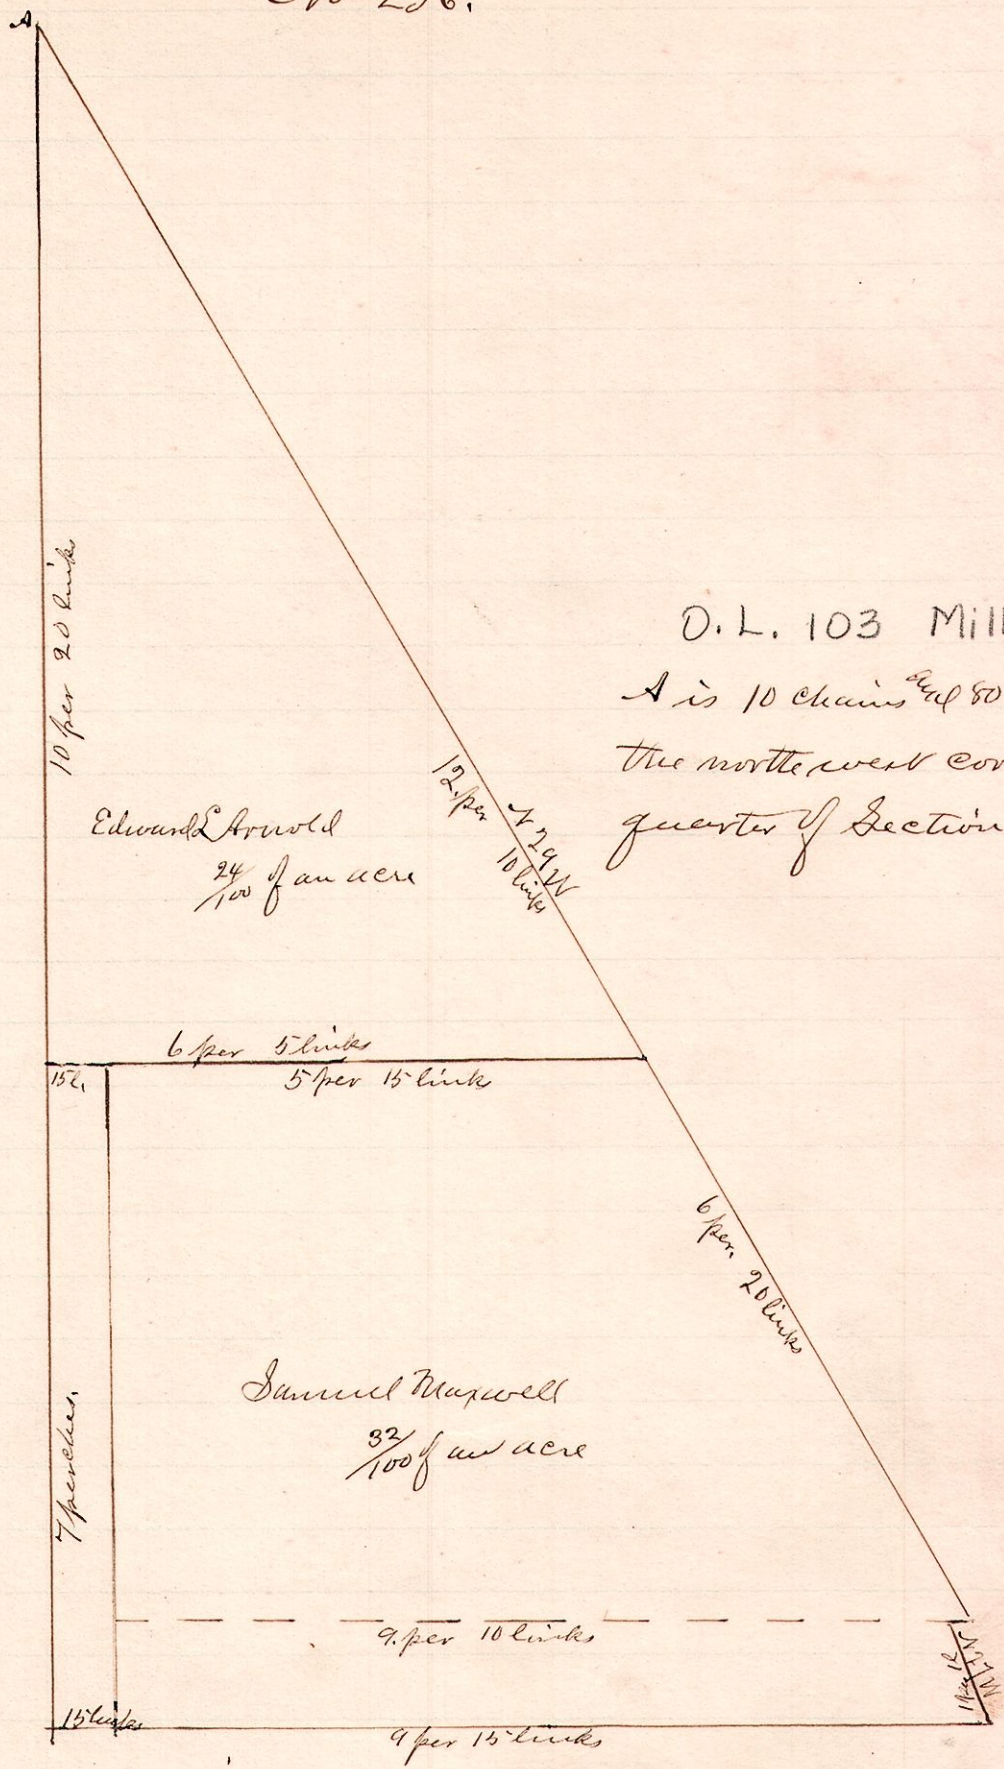 No 256.
A
10 per 20 links
O.L. 103 Mill
A is 10 chains and 80
the northwest cor
quarter of Section
12. per 10 links
N 29 W
Edward L Arnold
24/100 of an acre
6 per 5 links
15 l.
5 per 15 link
6 per. 20 links
Samuel Maxwell
32/100 of an acre
7 perches.
9. per 10 links
15 links
9 per 15 links